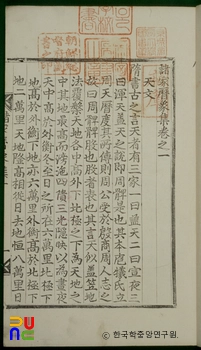 諸家曆象集卷之一
天文
隋書古之言天者有三家一曰蓋天二曰宣夜三
曰渾天蓋天之說即周髀是也其本庖犧氏立
周天曆度其所傳則周公受於殷商周人志之
故曰周髀髀股也股者表也其言天似蓋笠地
法覆槃天地各中高外下北極之下為天地之
中其地最高而滂沲四隤三光隱映以為晝夜
天中高於外衡冬至日之所在六萬里北極下
地高於外衡下地亦六萬里外衡高於北極下
地二萬里天地隆高相從日去地恒八萬里日
한국학중앙연구원